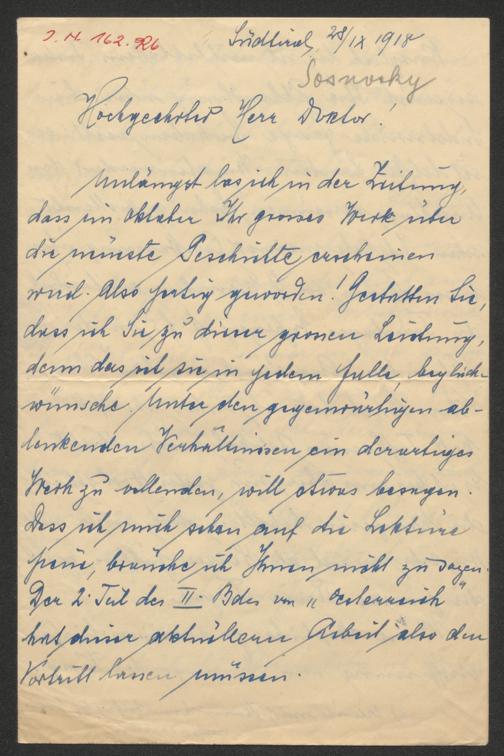 I. N. 162.926
Südtirol, 28/IX 1918
Sosnosky
Hochgeehrter Herr Doktor!
Unlängst las ich in der Zeitung,
dass im Oktober Ihr grosses Werk über
die neueste Geschichte erscheinen
wird. Also fertig geworden! Gestatten Sie,
dass ich Sie zu dieser grossen Leistung,
denn das ist sie in jedem Falle, beglück-
wünsche. Unter den gegenwärtigen ab-
lenkenden Verhältnissen ein derartiges
Werk zu vollenden, will etwas besagen.
Dass ich mich schon auf die Lektüre
freue, brauche ich Ihnen nicht zu sagen.
Der 2. Teil des II. Bdes von "Österreich"
hat dieser aktuelleren Arbeit also den
Vortritt lassen müssen.